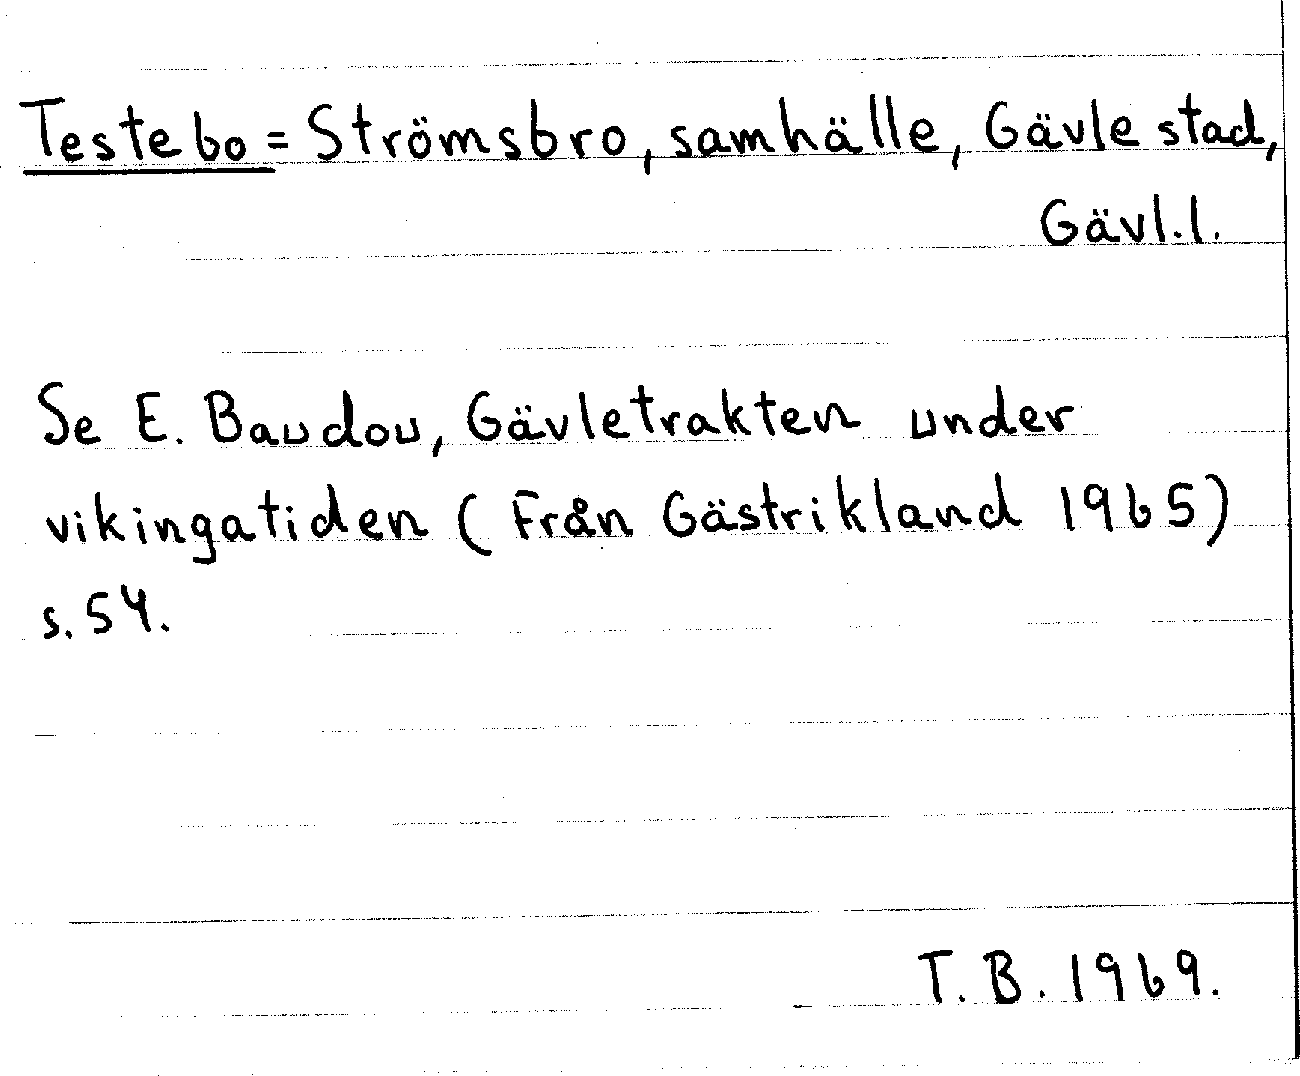 Testebo = Strömsbro, samhälle, Gävle stad,
Gävl.l.
Se E. Baudou, Gävletrakten under
vikingatiden (Från Gästrikland 1965)
s. 54.
T. B. 1969.